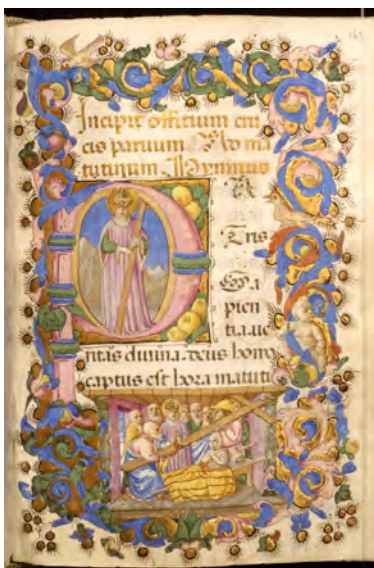 Incipit offitium cru
cis paruum Ad ma
tutinum Hymnus
P
A
Tris
Sa
pien
tia ue
ritas diuina deus homo
captus est hora matuti